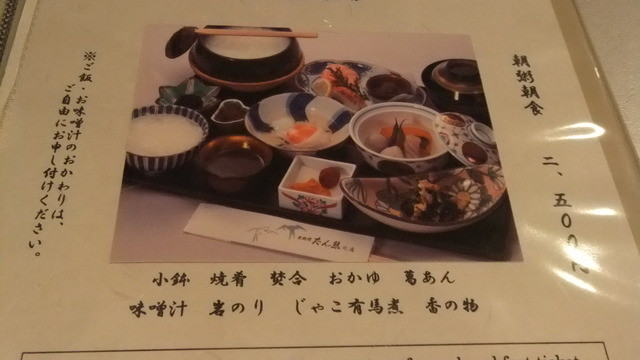 朝粥朝食 二、五〇〇円
※ご飯・お味噌汁のおかわりは、
ご自由にお申し付けください。
たん熊
小鉢 焼肴 焚合 おかゆ 葛あん
味噌汁 岩のり じゃこ有馬煮 香の物